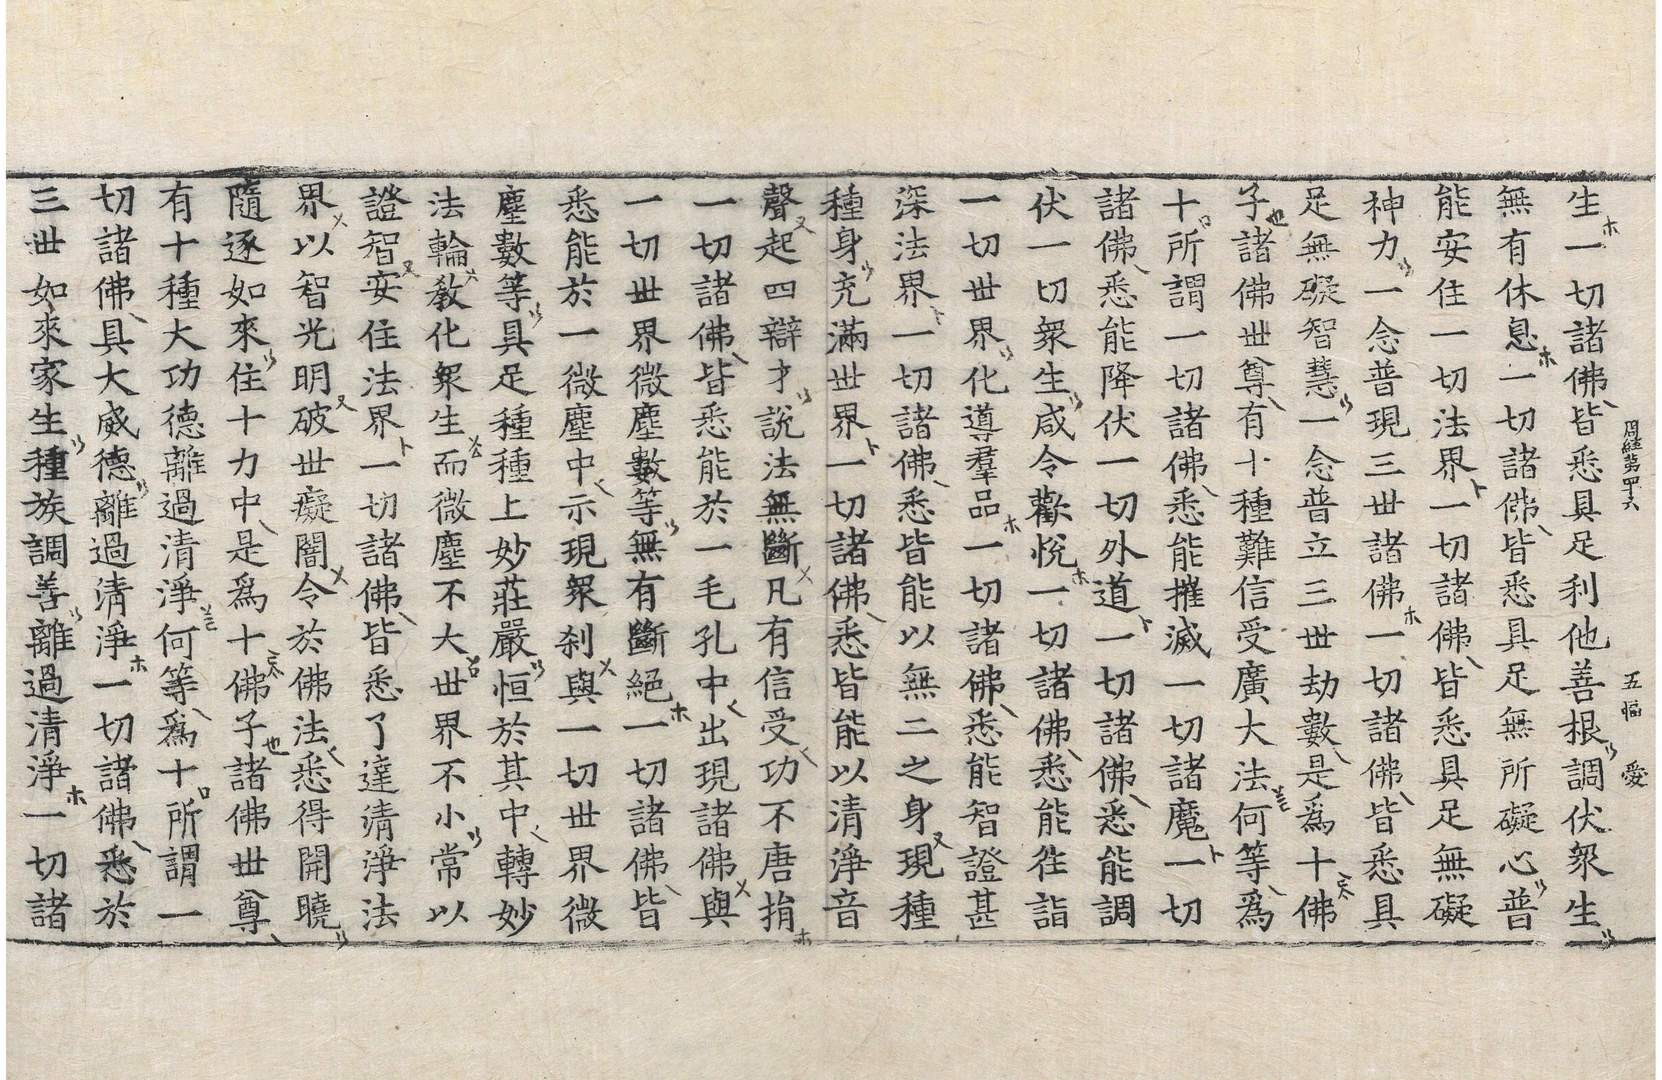 生一切諸佛皆悉具足利他善根調伏衆生
無有休息一切諸佛皆悉具足無所礙心普
能安住一切法界一切諸佛皆悉具足無礙
神力一念普現三世諸佛一切諸佛皆悉具
足無礙智慧一念普立三世劫數是爲十佛
子諸佛世尊有十種難信受廣大法何等爲
十所謂一切諸佛悉能摧滅一切諸魔一切
諸佛悉能降伏一切外道一切諸佛悉能調
伏一切衆生咸令歡悅一切諸佛悉能往詣
一切世界化導羣品一切諸佛悉能智證甚
深法界一切諸佛悉皆能以無二之身現種
種身充滿世界一切諸佛悉皆能以清淨音
聲起四辯才說法無斷凡有信受功不唐捐
一切諸佛皆悉能於一毛孔中出現諸佛與
一切世界微塵數等無有斷絕一切諸佛皆
悉能於一微塵中示現衆刹與一切世界微
塵數等具足種種上妙莊嚴恒於其中轉妙
法輪敎化衆生而微塵不大世界不小常以
證智安住法界一切諸佛皆悉了達清淨法
界以智光明破世癡闇令於佛法悉得開曉
隨逐如來住十力中是爲十佛子諸佛世尊
有十種大功德離過清淨何等爲十所謂一
切諸佛具大威德離過清淨一切諸佛悉於
三世如來家生種族調善離過清淨一切諸